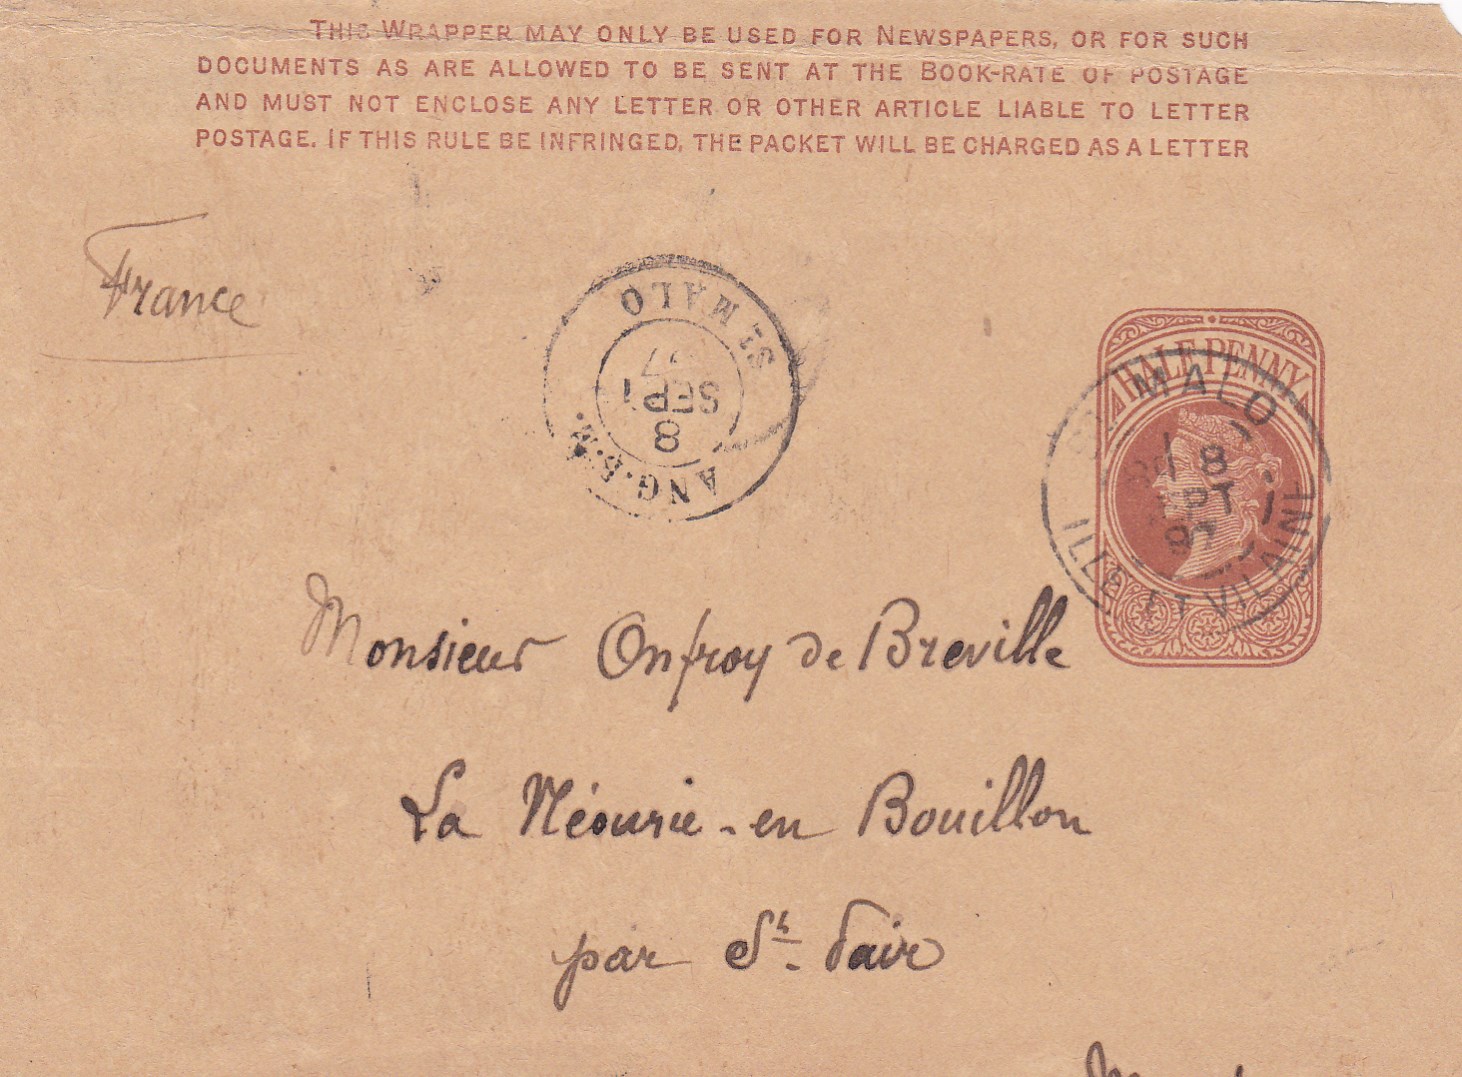 THIS WRAPPER MAY ONLY BE USED FOR NEWSPAPERS, OR FOR SUCH
DOCUMENTS AS ARE ALLOWED TO BE SENT AT THE BOOK-RATE OF POSTAGE
AND MUST NOT ENCLOSE ANY LETTER OR OTHER ARTICLE LIABLE TO LETTER
POSTAGE. IF THIS RULE BE INFRINGED, THE PACKET WILL BE CHARGED AS A LETTER
France
ANG.B.M.
8
SEPT
97
ST MALO
HALFPENNY
ST MALO
8
SEPT
97
ILLE ET VILAINE
Monsieur Onfroy de Breville
La Néourie-en Bouillon
par St. Pair